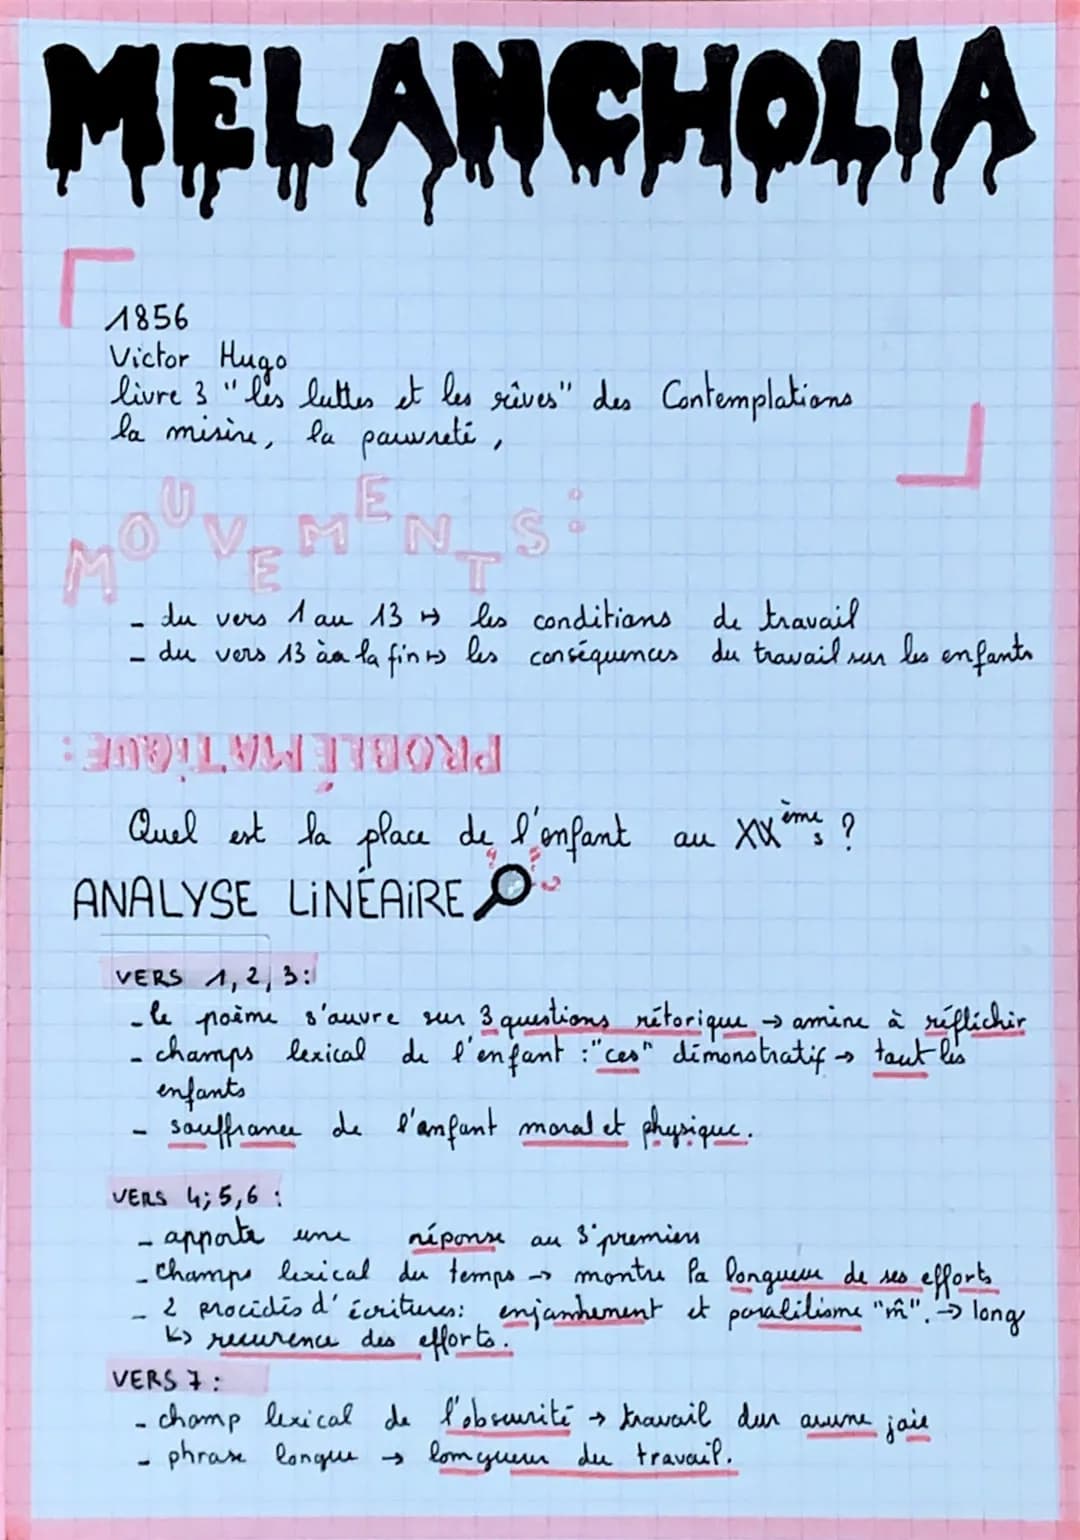 MELANCHOLIA
1856
Victor Hugo
livre 3 "les luttes et les rêves" des Contemplations
la misère, la pauvreté,
MOUVEMENTS :
- du vers 1 au 13 ↦ les conditions de travail
- du vers 13 à la fin ↦ les conséquences du travail sur les enfants
PROBLÉMATIQUE :
Quel est la place de l'enfant au XIXème s ?
ANALYSE LINÉAIRE
VERS 1, 2, 3 :
- le poème s'ouvre sur 3 questions rétorique → amène à réfléchir
- champs lexical de l'enfant : "ces" démonstratif → tout les
enfants
- souffrance de l'enfant moral et physique.
VERS 4; 5, 6 :
- apporte une réponse au 3 premiers
- Champs lexical du temps → montre la longueur de ses efforts
- 2 procédés d'écritures : enjambement et paralélisme "m̂". → long
↳ recurence des efforts.
VERS 7 :
- champ lexical de l'obscurité → travail dur aucune joie
- phrase longue → longueur du travail.